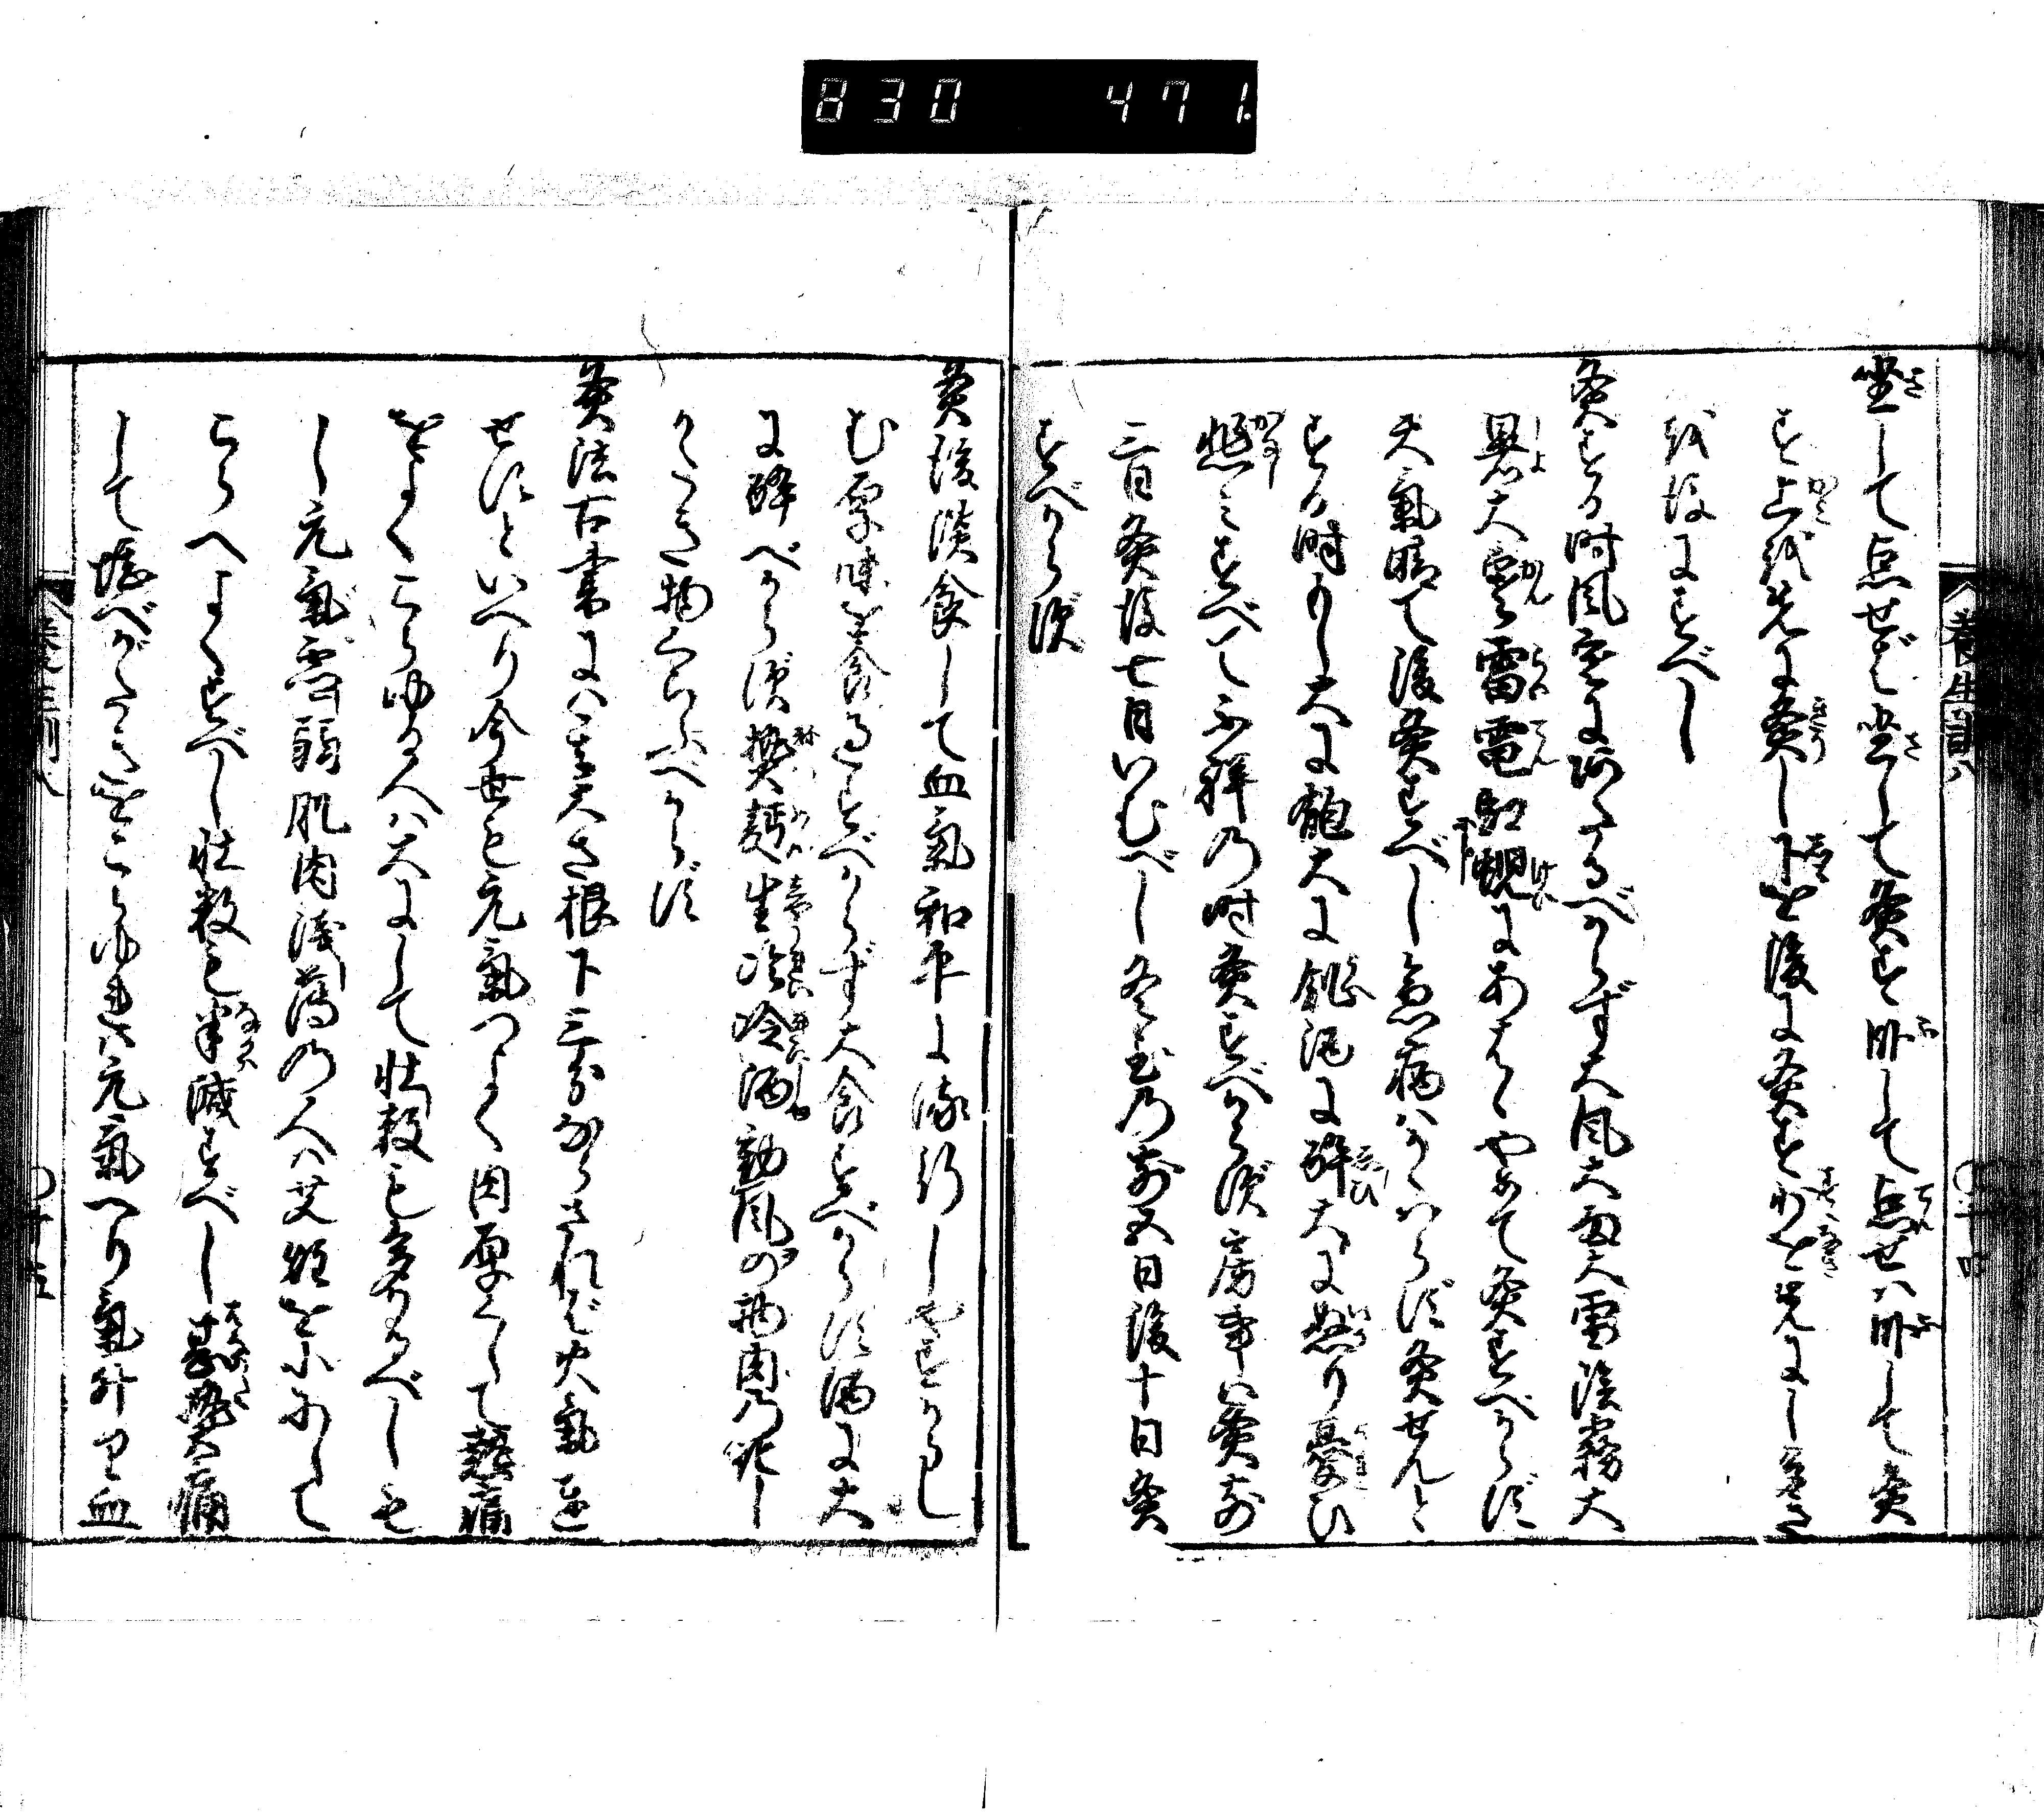 830 471
養生訓 八
坐して点せば坐して灸す臥して点せハ臥して灸
す上を先に灸し下を後に灸す少を先にし多き
を後にすべし
灸する時風寒にあたるべからず大風大雨大雪陰霧大
暑大寒雷電虹蜺にあはゞやめて灸すべからず
天氣晴て後灸すべし急病ハかゝハらず灸せんと
する時もし大に飽大に飢酒に醉大に怒り憂ひ
悲ミすべて不祥の時灸すべからず房事ハ灸前
三日灸後七日いむべし冬至の前五日後十日灸
すべからず
灸後淡食して血氣和平に流行しやすからし
む厚味を食過すべからず大食すべからず酒に大
に醉べからず熱麪生冷冷酒動風の物肉の化し
がたき物くらふべからず
灸法古書にハ其大さ根下三分ならざれば火氣達
せずといへり今世も元氣つよく肉厚くして熱痛
をよくこらゆる人ハ大にして壮数も多かるべしも
し元氣虚弱肌肉浅薄の人ハ艾炷を小にして
こらへよくすべし壮数も半減すべし甚熱痛
して堪へがたきをこらゆれハ元氣へり氣升り血
養生訓 八